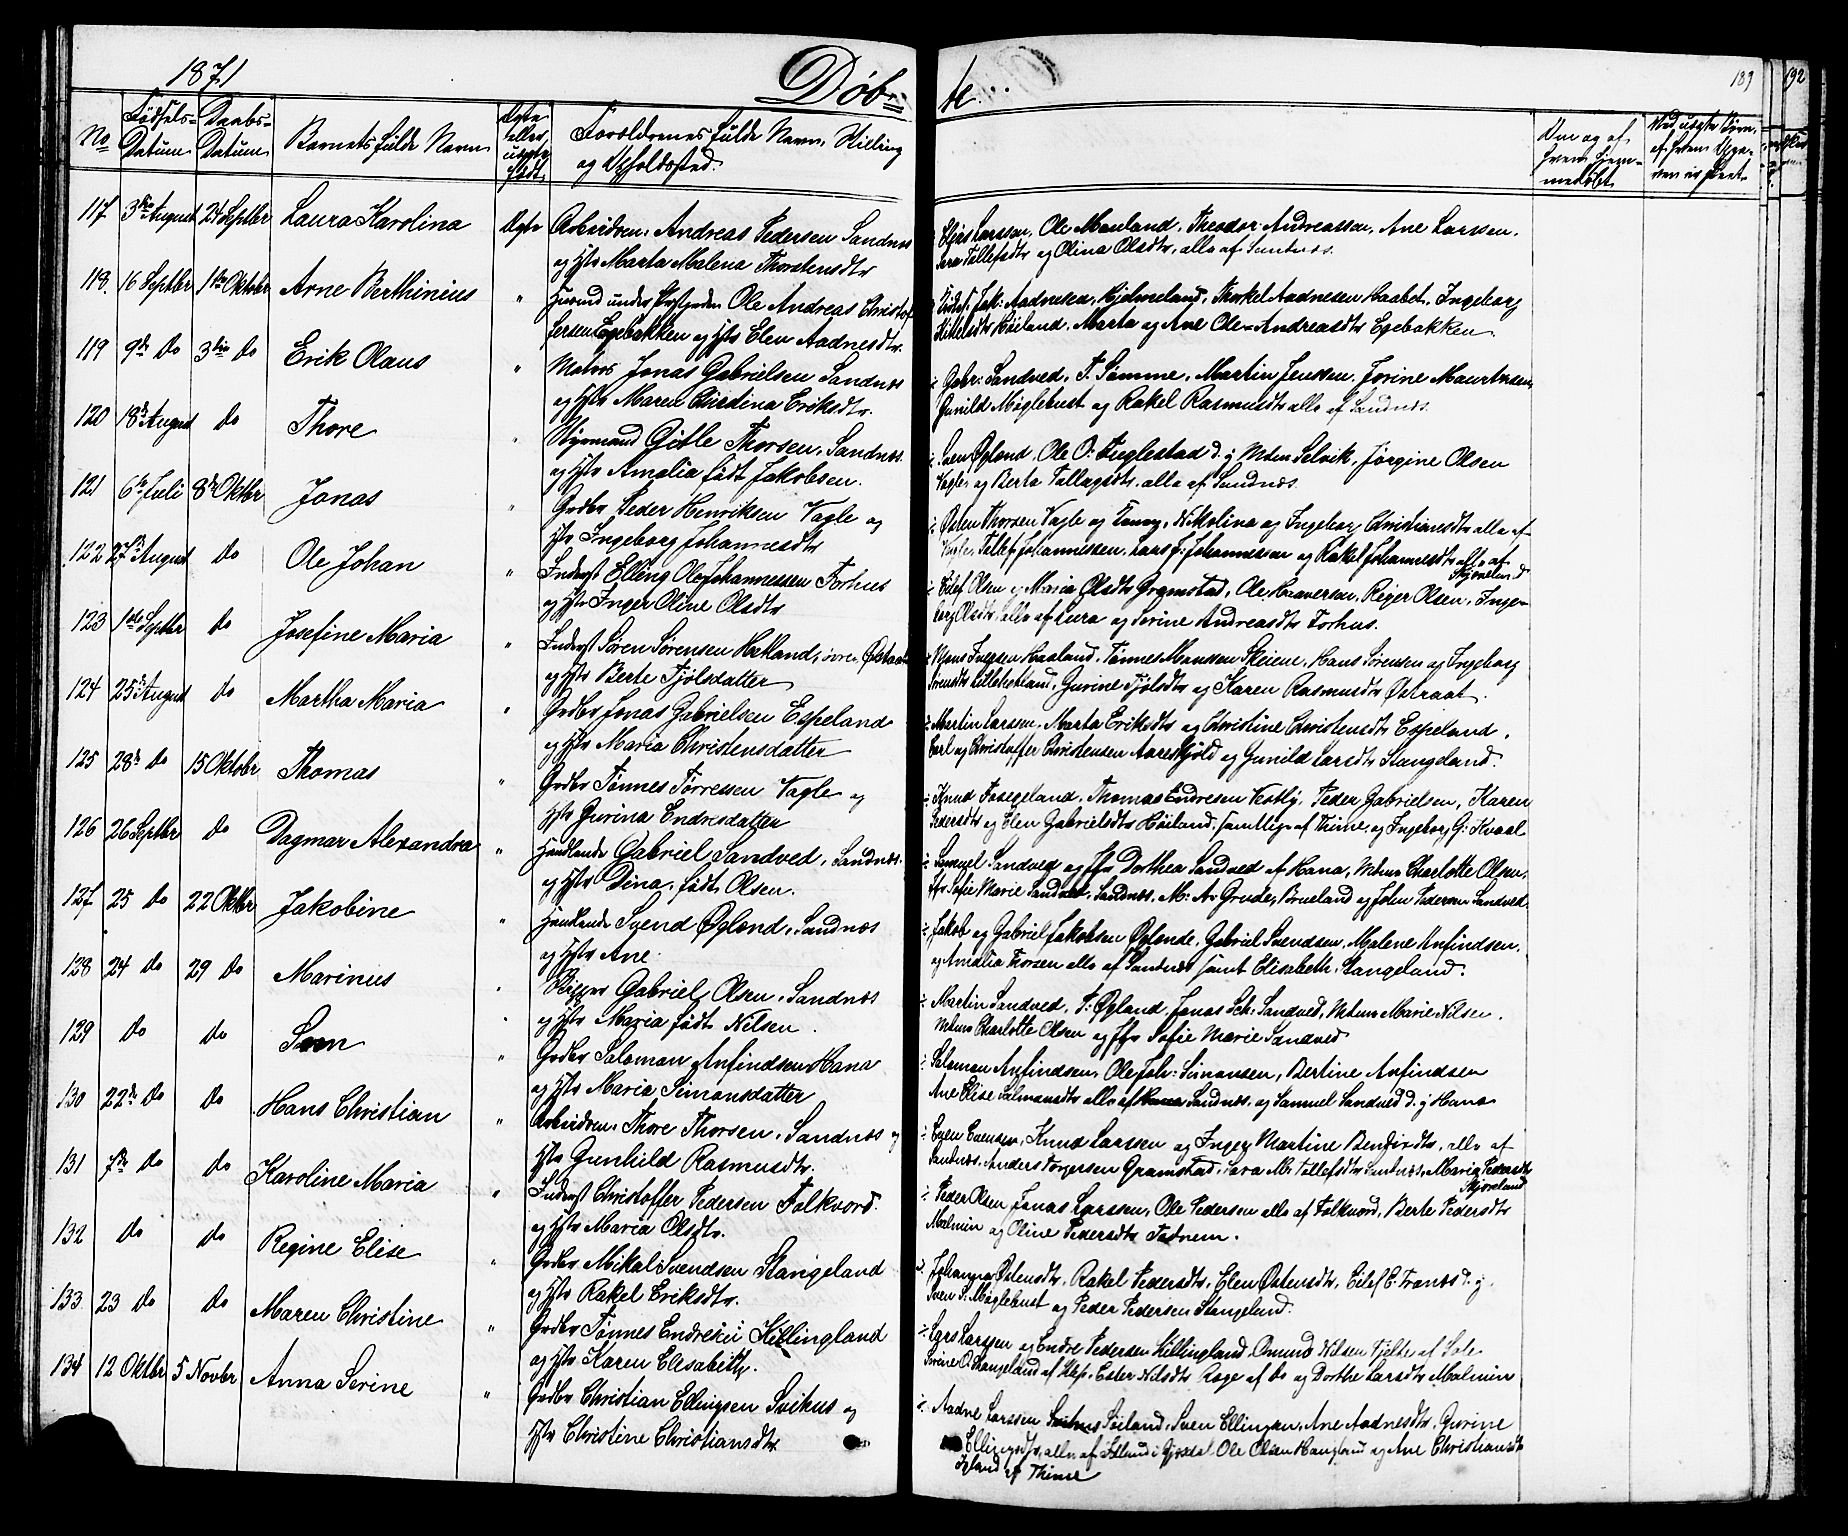 1871 Døbte. 189 192
No Fødsels-Datum Daabs-Datum Barnets fulde Navn Ægte eller uægte født Forældrenes fulde Navn, Stilling og Opholdssted.
117 3die August 24 Septbr Laura Karolina Ægte Arbeidsm. Andreas Pedersen Sandnæs
og Hst Marta Malena Thorstensdtr
Elias Larssen, Ole Mauland, Theodor Andreassen, Ane Larssen,
Sara Tollefsdtr og Olina Olsdtr, alle af Sandnæs.
118. 16 Septbr 1ste Oktobr Arne Berthinius " Huusmd under Præstgarden Ole Andreas Christof-
fersen Egebakken og Hst Elen Aadnesdtr.
Jak: Aadnesen, Hjelmeland, Thorkel Aadnesen Haabet, Ingeborg
Høiland, Marta og Ane Ole-Andreasdtr Egebakken.
119 9de Do 3die Do Erik Olaus " Matros Jonas Gabrielsen Sandnæs
og Hst Maren Gurdina Eriksdtr.
Gabr: Sandved, T. Sømme, Martin Jenssen, Jorine Mauritzsen,
Gunild Møglebust og Rakel Rasmusdtr alle af Sandnæs.
120 18de August do Thore " Styrmand Gitle Thorsen, Sandnæs
og Hst Amalia født Jakobsen.
Sven Øglænd, Ole O. Fuglestad d. y Mdm Selvik, Jørgine Olsen
Vagle, og Berta Tallagsdtr, alle af Sandnæs.
121 6te Juli 8de Oktbr Jonas " Grdbr Peder Henriksen Vagle og
Hst Ingeborg Johannesdtr
Østen Thorsen Vagle og Nikolina og Ingeborg Christiansdtr alle af
Vagle, Tollef Johannessen, Lars J: Johannessen og Rakel Johannesdtr alle af
Skjæveland
122 27de August do Ole Johan " Inderst Elling Olef Johannessen Forhus
og Hst Inger Oline Olsdtr
Eilef Olsen og Maria Olsdtr Gramstad, Ole Haaversen, Reier Olsen, Inge-
borg Olsdtr, alle af Lura og Serine Andreasdtr Forhus.
123 1ste Septbr do Josefine Maria " Inderst Søren Sørensen Hetland, øvre Østraat
og Hst Berte Fjølsdatter
Mons Iversen Haaland, Tønnes Monssen Skeiene, Hans Sørensen og Ingeborg
Sørensdtr Lillehetland, Gurine Fjølsdtr og Karen Rasmusdtr Østraat.
124 25de August do Martha Maria " Grdbr Jonas Gabrielsen Espeland
og Hst Maria Christensdatter
Martin Larsen, Marta Eriksdtr og Christine Christensdtr Espeland,
Carl og Christoffer Christensen Aareskjold og Gunild Larsdtr Stangeland.
125 28de Do 15 Oktobr Thomas " Grdbr Tønnes Tørressen Vagle og
Hst Gurina Endresdatter
Knud Fosseland, Thomas Endresen Vestly, Peder Gabrielsen, Karen
Pedersdtr og Elen Gabrielsdtr Høiland, samtlige af Thime, og Ingeborg G: Kvaal
126 26 Septbr do Dagmar Alexandra " Handlende Gabriel Sandved, Sandnæs.
og Hst Dina, født Olsen.
Samuel Sandved og Jfr Dorthea Sandved af Hana, Mdm Charlotte Olsen,
Jfr Sofie Marie Sandved, Sandnæs, M: A: Grude, Brueland og John Pedersen Sandved.
127 25 Do 22 Oktbr Jakobine " Handlende Svend Øglænd, Sandnæs
og Hst Ane.
Jakob og Gabriel Jakobsen Øglænde, Gabriel Svendsen, Malene Anfindsen,
og Amalia Thorsen alle af Sandnæs samt Elisabeth Stangeland.
128 24 Do 29 Do Marinus " Skipper Gabriel Olsen, Sandnæs
og Hst Maria født Nilsen.
Martin Sandved, T: Øgland, Jonas Sch: Sandved, Mdm Marie Nilsen,
Mdm Charlotte Olsen og Jfr Sofie Marie Sandved
129 Do Do Sven " Grdbr Salomon Anfindsen Hana
og Hst Maria Simonsdatter
Salomon Anfindsen, Ole Joh: Simonsen, Bertine Anfindsen
Ane Elise Salmonsdtr alle af Sandnæs, og Samuel Sandved d. y Hana
130 22de Do Do Hans Christian " Arbeidsm. Thore Thorsen, Sandnæs og
Hst Gunhild Rasmusdtr.
Even Evensen, Knud Larssen og Inger Martine Bendixdtr, alle af
Sandnæs, Anders Torgersen Gramstad, Sara M: Tollefsdtr Sandnæs, Maria Pedersdtr
Skjæveland
131 7de Do Do Karoline Maria " Inderst Christoffer Pedersen Folkvord
og Hst Maria Olsdtr.
Peder Olsen, Jonas Larssen, Ole Pedersen alle af Folkvord, Berte Pedersdtr
Malmin og Oline Pedersdtr Fadnem.
132 Do Do Regine Elise " Grdbr Mikal Svendsen Stangeland
og Hst Rakel Eriksdtr.
Johanna Østensdtr, Rakel Pedersdtr, Elen Østensdtr, Eilef E. Tranæs d. y.
Sven S. Møglebust og Peder Pedersen Stangeland.
133 23 Do Do Maren Christine " Grdbr Tønnes Endresen Killingland
og Hst Karen Elisabeth.
Lars Larssen og Endre Pedersen Killingland, Omund Nilsen Tjelte af Sole
Serine O. Stangeland af Klep, Ester Nilsdtr Rage af Do og Dorthe Larsdtr Malmin
134 12 Oktbr 5 Novbr Anna Serine " Grdbr Christian Ellingsen Svihus og
Hst Christine Christiansdtr
Aadne Larssen Seiland, Sven Ellingsen, Ane Aadnesdtr, Gurine
Ellingsdtr, alle af i Gjesdal, Ole Olsen Haugland og Ane Christiansdtr
Igland af Thime